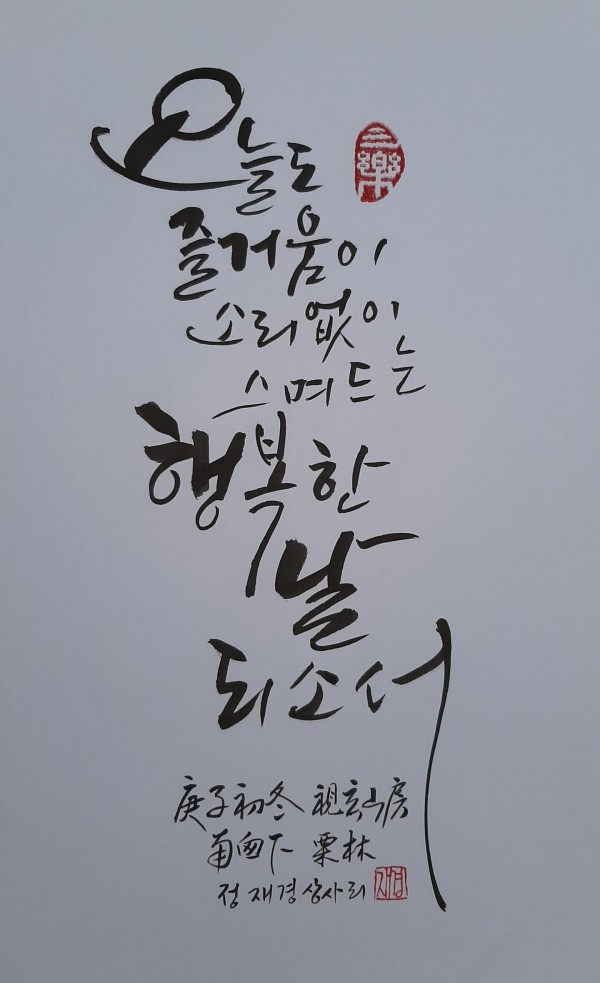 오늘도
三樂
즐거움이
소리없이
스며드는
행복한
날
되소서
庚子初冬 視玄山房
南囱下 栗林
정재경상사리
재경